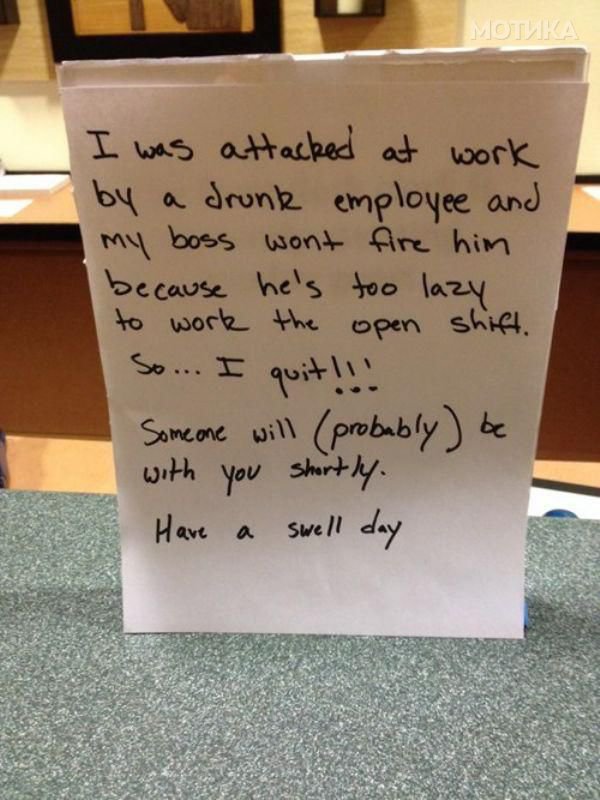 МОТИКА
I was attacked at work
by a drunk employee and
my boss wont fire him
because he's too lazy
to work the open shift.
So... I quit!!!
Someone will (probably) be
with you shortly.
Have a swell day